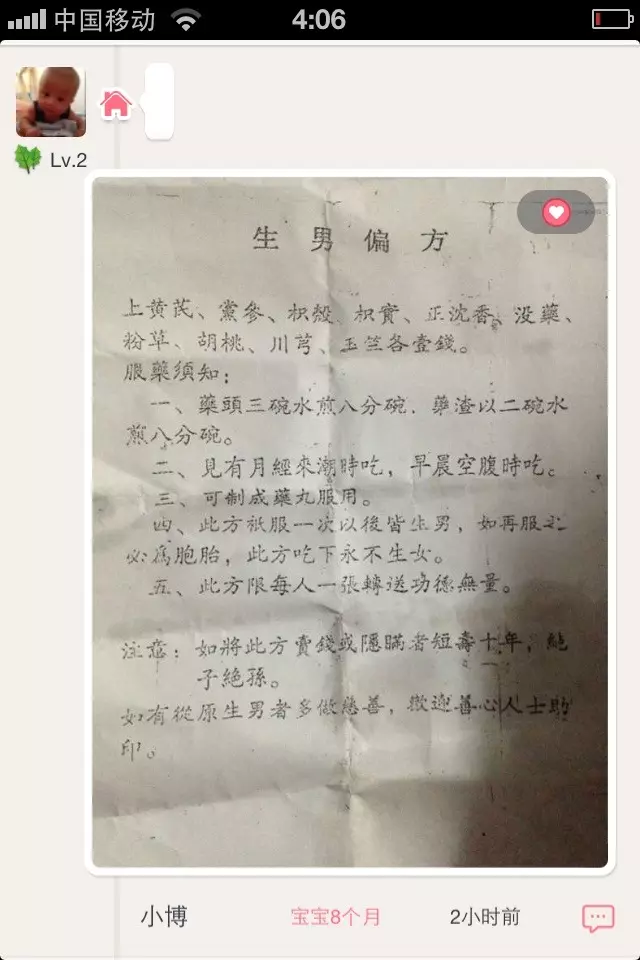 中国移动 4:06
Lv.2
生男偏方
上黄芪、黨參、枳殼、枳實、正沈香、没藥、
粉草、胡桃、川芎、玉竺各壹錢。
服藥須知：
一、藥頭三碗水煎八分碗．藥渣以二碗水
煎八分碗。
二、見有月經來潮時吃，早晨空腹時吃。
三、可制成藥丸服用。
四、此方衹服一次以後皆生男，如再服之
必爲胞胎，此方吃下永不生女。
五、此方限每人一張轉送功德無量。
注意：如將此方賣錢或隱瞞者短壽十年，絶
子絶孫。
如有從原生男者多做慈善，歡迎善心人士助
印。
小博 宝宝8个月 2小时前